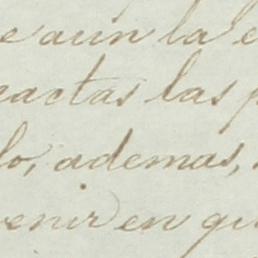 e aun la e
eactas las p
lo, ademas,
venir en qu